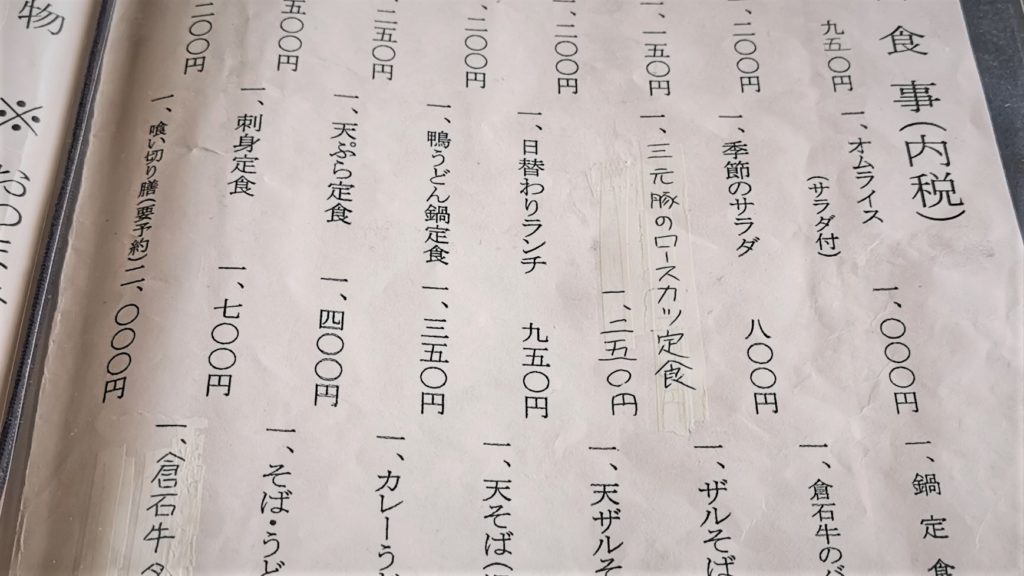 食事（内税）
九五〇円
一、オムライス
（サラダ付）
一、〇〇〇円
一、鍋定食
一、二〇〇円
一、季節のサラダ
八〇〇円
一、倉石牛の
一、一五〇円
一、三元豚のロースカツ定食
一、二五〇円
一、ザルそば
一、二〇〇円
一、日替わりランチ
九五〇円
一、天ザルそ
二〇〇円
一、鴨うどん鍋定食
一、三五〇円
一、天そば（
二五〇円
一、天ぷら定食
一、四〇〇円
一、カレーう
五〇〇円
一、刺身定食
一、七〇〇円
一、そば・うど
二〇〇円
一、喰い切り膳（要予約）
二、〇〇〇円
一、倉石牛
物
※